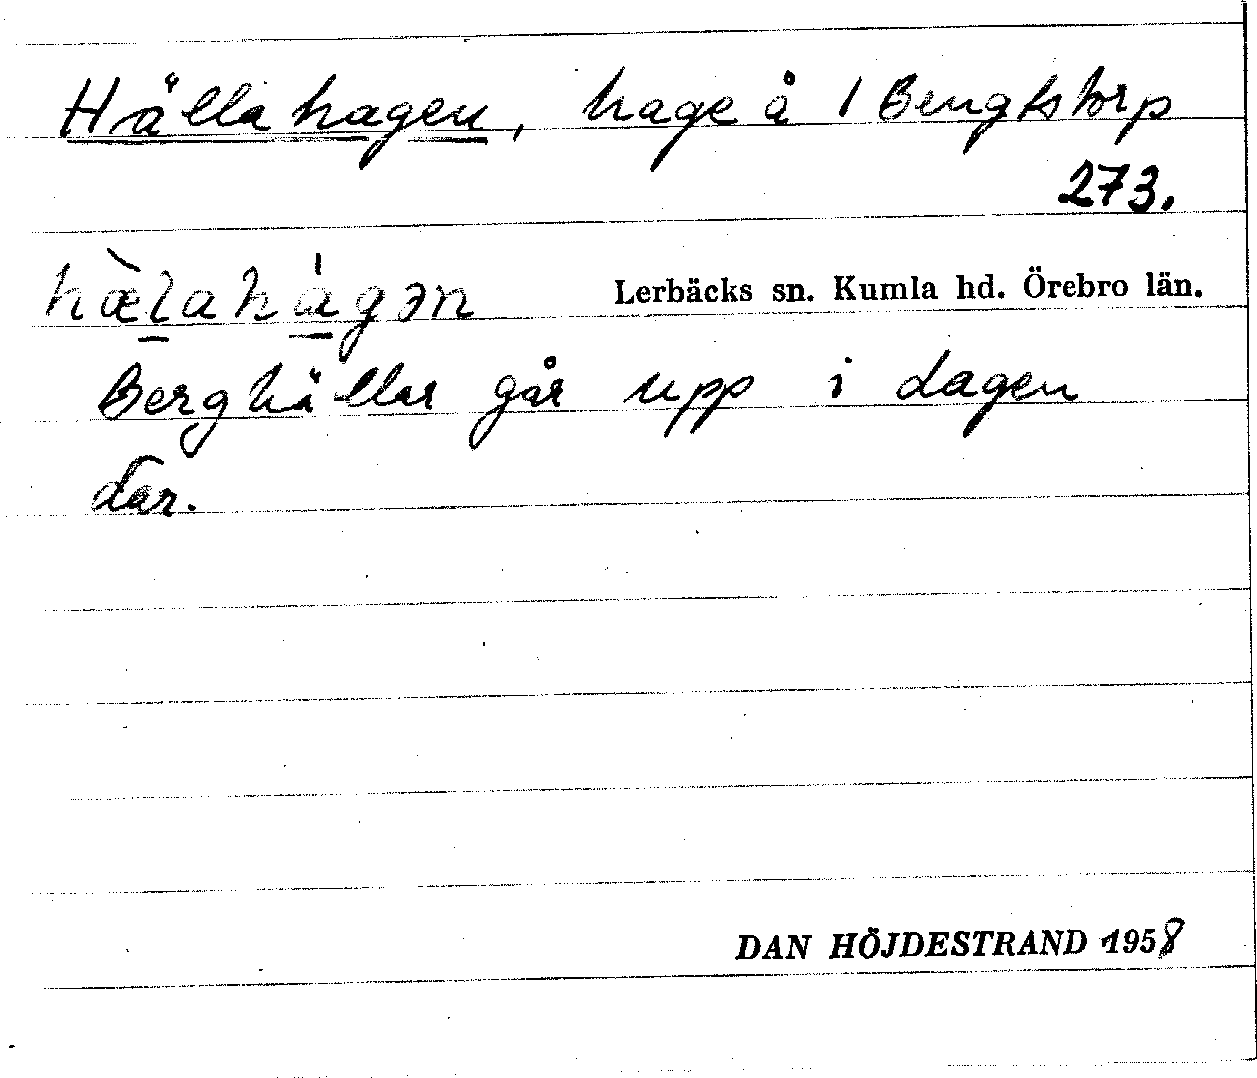 Hällahagen, hage å 1 Bengtstorp
273.
hæ̀l̠ahá̠gən Lerbäcks sn. Kumla hd. Örebro län.
Berghällar går upp i dagen
där.
DAN HÖJDESTRAND 1958